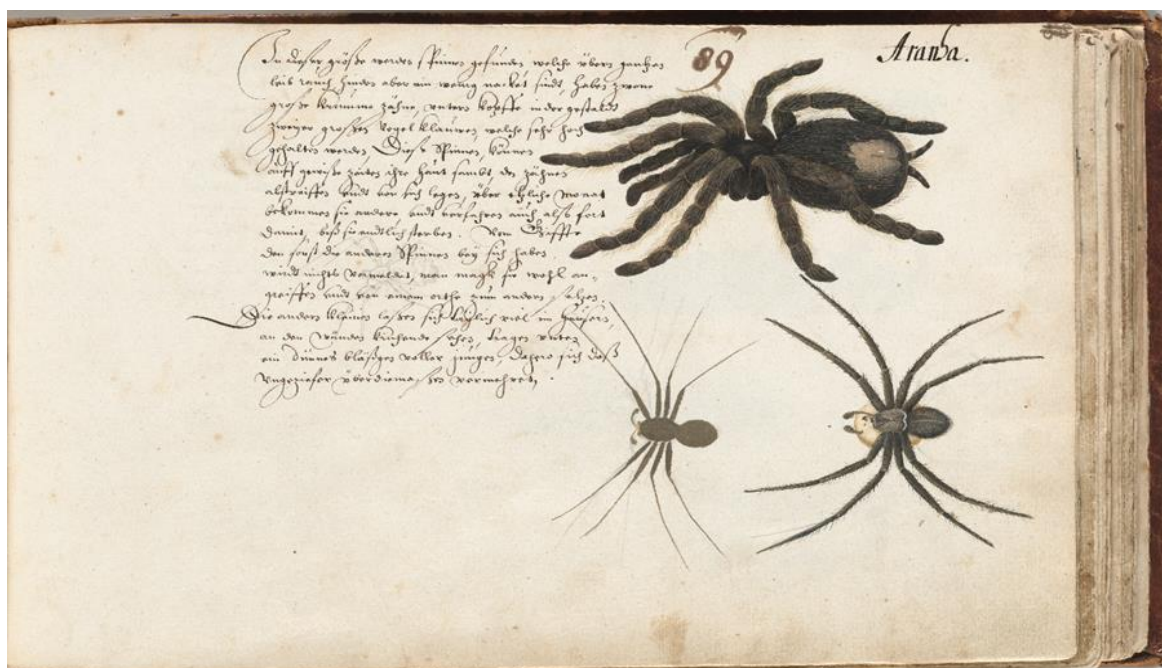 89
Aranha.
In dieser größe werden spinnen gefunden welche übern gantzen
leib rauch, hinden aber ein wenig nacket sindt, haben zwene
große krumme zähne, unterm kopffe in der gestaldt
zweyer großen Vogel klauwen welche sehr hoch
gehalten werden. Diese Spinnen, können
auff gewiße zeiten ihre haut sambt den zähnen
abstreiffen undt von sich legen, über etzliche monat
bekommen sie andere undt verfahren auch also fort
damit, biß sie endtlich sterben. Vom Gifffte
den sonst die anderen Spinnen bey sich haben
wird nichts vermeldet, man magk sie wohl an-
greiffen undt von einem orthe zum andern setzen.
Die andern kleinen laßen sich täglich viel in häusern,
an den wänden kriechende sehen, tragen unter
ein dünnes bläßgen voller jungen, dahero sich daß
Ungeziefer überdiemaßen vermehret.